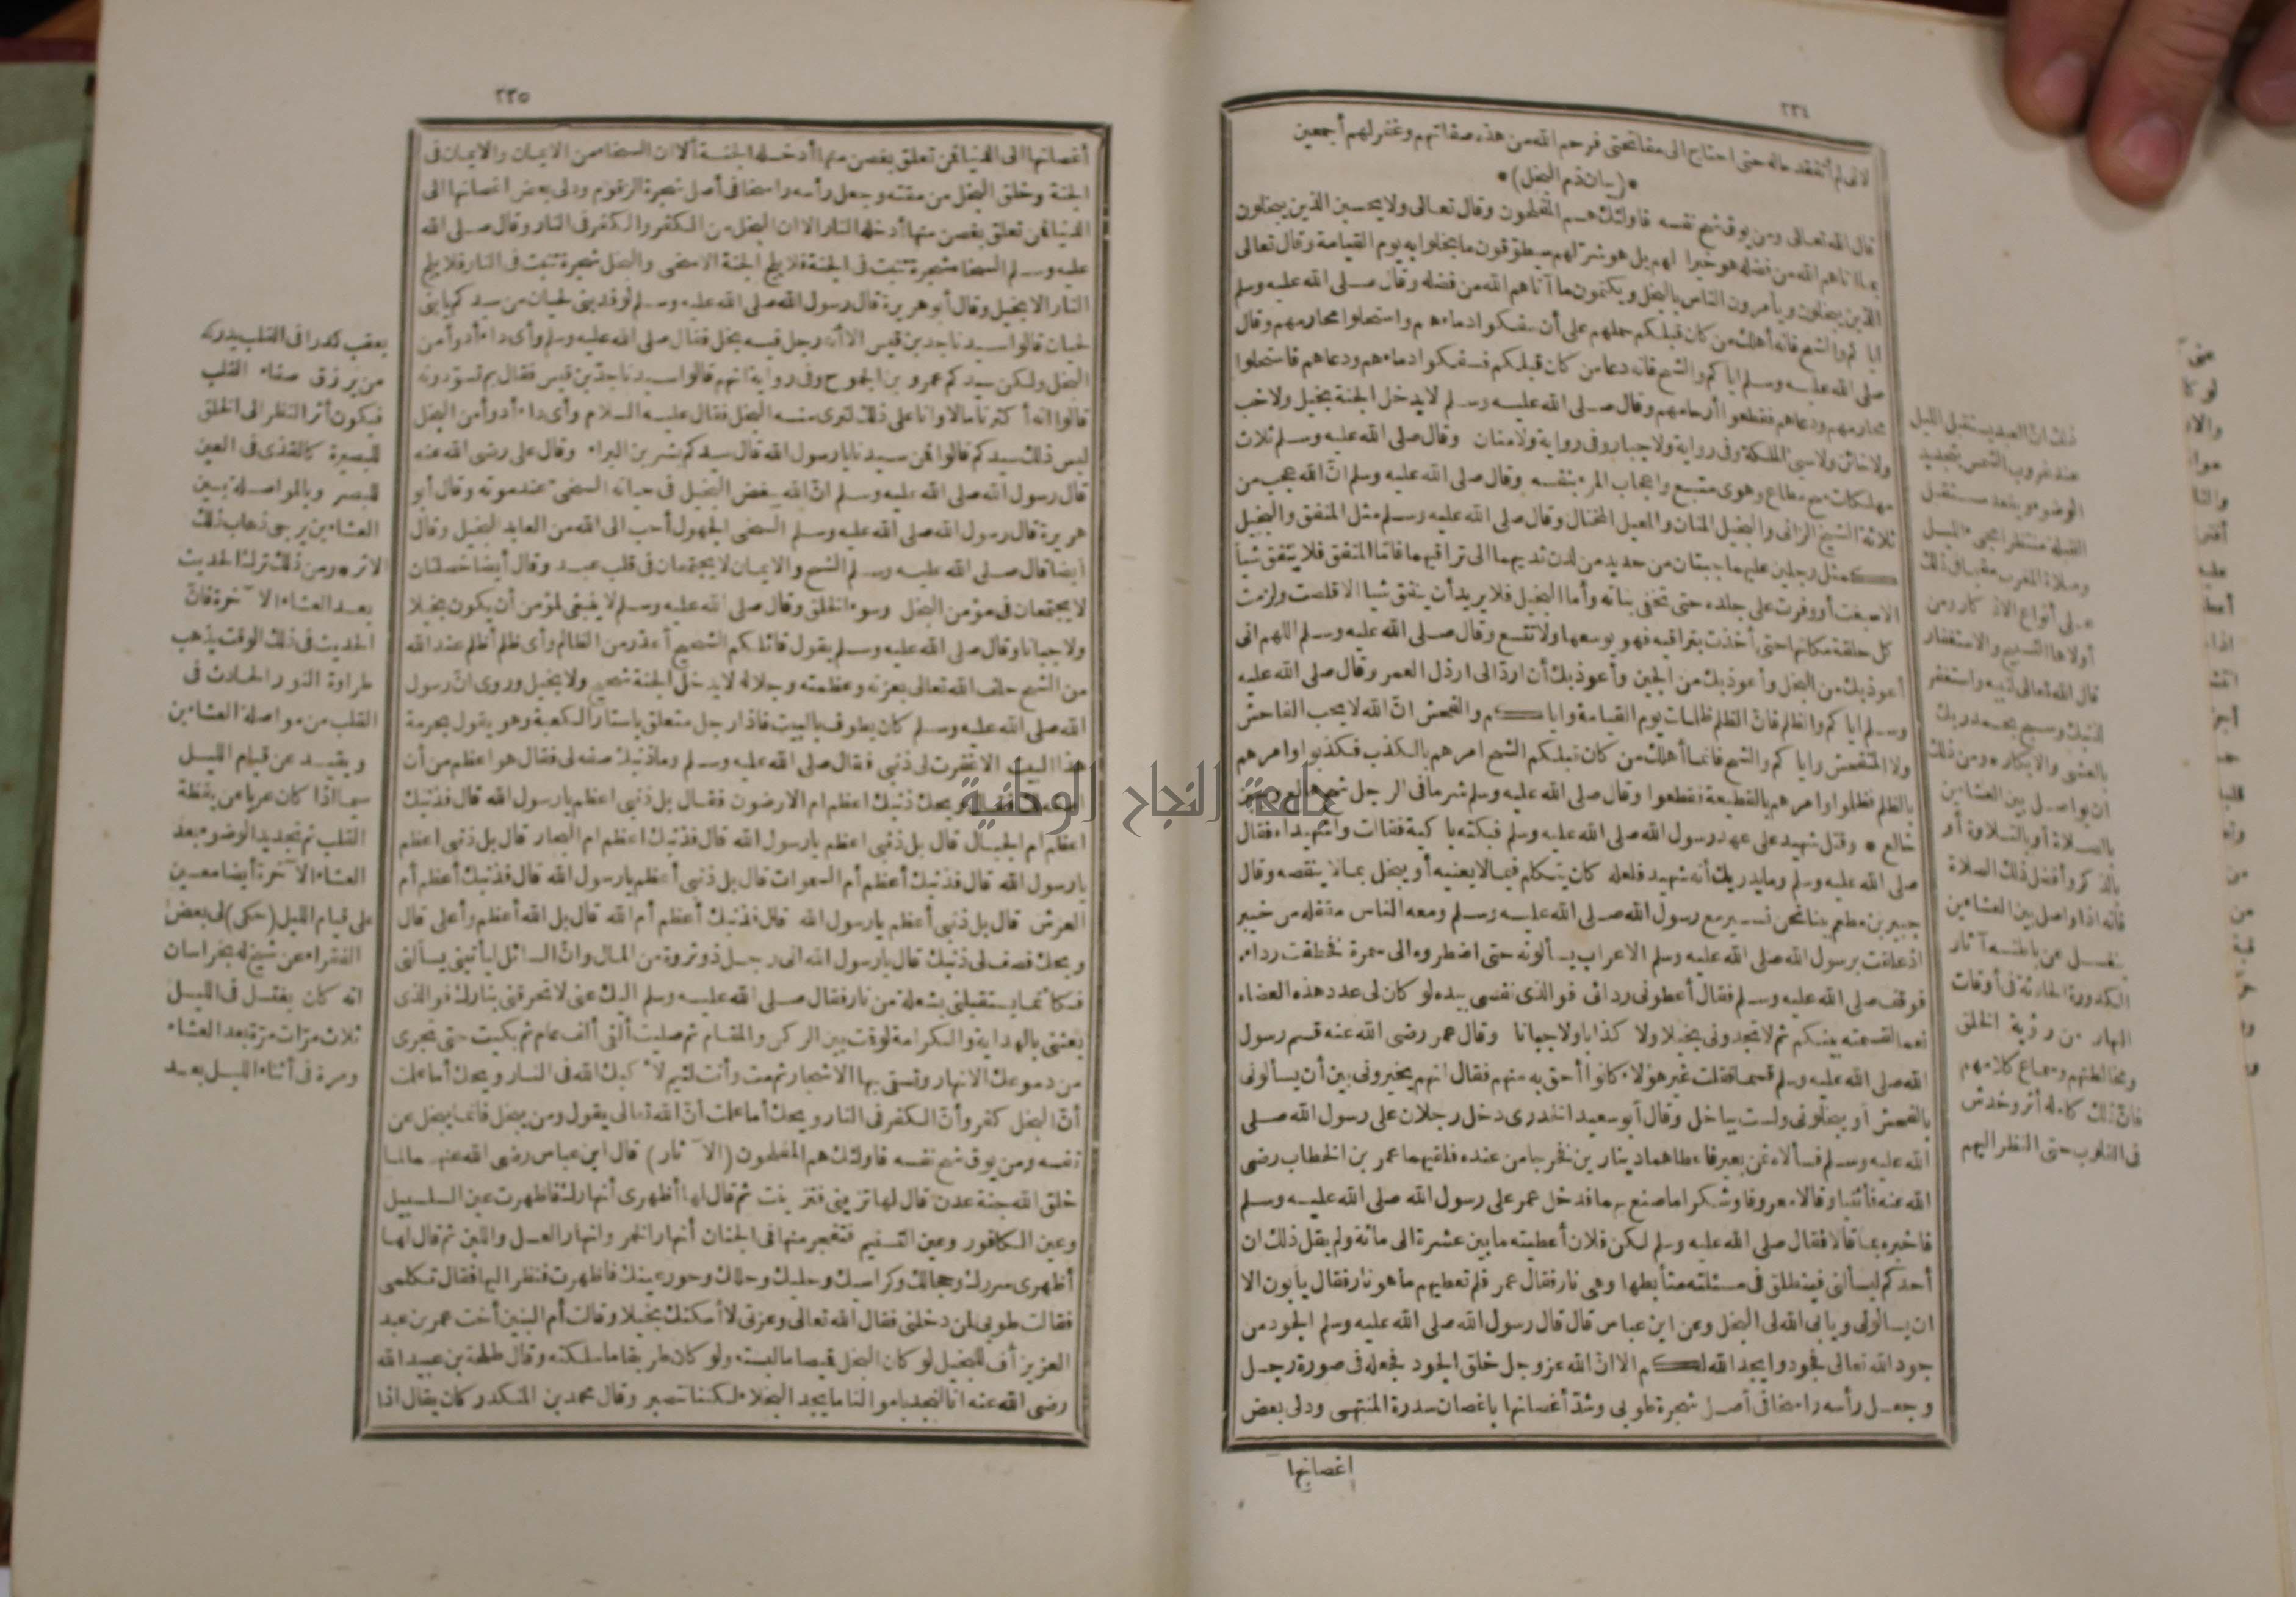 ٢٣٤
لانى لم أتفقد حاله حتى احتاج الى مفاتحتى فرحم الله من هذه صفاتهم وغفر لهم أجمعين
*(بيان ذم البخل)*
قال الله تعالى ومن يوق شح نفسه فاولئك هم المفلحون وقال تعالى ولا يحسبن الذين يبخلون
بما آتاهم الله من فضله هو خيرا لهم بل هو شر لهم سيطوقون ما بخلوا به يوم القيامة وقال تعالى
الذين يبخلون ويأمرون الناس بالبخل ويكتمون ما آتاهم الله من فضله وقال صلى الله عليه وسلم
اياكم والشح فانه أهلك من كان قبلكم حملهم على أن سفكوا دماءهم واستحلوا محارمهم وقال
صلى الله عليه وسلم اياكم والشح فانه دعا من كان قبلكم فسفكوا دماءهم ودعاهم فاستحلوا
محارمهم ودعاهم فقطعوا أرحامهم وقال صلى الله عليه وسلم لا يدخل الجنة بخيل ولا خب
ولا خائن ولا سيئ الملكة وفى رواية ولا جبار وفى رواية ولا منان وقال صلى الله عليه وسلم ثلاث
مهلكات شح مطاع وهوى متبع واعجاب المرء بنفسه وقال صلى الله عليه وسلم ان الله يبغض
ثلاثة الشيخ الزانى والبخيل المنان والمعيل المختال وقال صلى الله عليه وسلم مثل المنفق والبخيل
كمثل رجلين عليهما جبتان من حديد من لدن ثديهما الى تراقيهما فاما المنفق فلا ينفق شيأ
الا سبغت أو وفرت على جلده حتى تخفى بنانه وأما البخيل فلا يريد أن ينفق شيأ الا قلصت ولزمت
كل حلقة مكانها حتى أخذت بتراقيه فهو يوسعها ولا تتسع وقال صلى الله عليه وسلم اللهم انى
أعوذ بك من البخل وأعوذ بك من الجبن وأعوذ بك أن اردّ الى ارذل العمر وقال صلى الله عليه
وسلم اياكم والظلم فان الظلم ظلمات يوم القيامة واياكم والفحش ان الله لا يحب الفاحش
ولا المتفحش واياكم والشح فانما أهلك من كان قبلكم الشح امرهم بالكذب فكذبوا وامرهم
بالظلم فظلموا وامرهم بالقطيعة فقطعوا وقال صلى الله عليه وسلم شر ما فى الرجل شح هالع وجبن
خالع * وقتل شهيد على عهد رسول الله صلى الله عليه وسلم فبكته باكية فقالت واشهيداه فقال
صلى الله عليه وسلم وما يدريك أنه شهيد فلعله كان يتكلم فيما لا يعنيه أو يبخل بما لا ينقصه وقال
جبير بن مطعم بينا نحن نسير مع رسول الله صلى الله عليه وسلم ومعه الناس مقفله من خيبر
اذ علقت برسول الله صلى الله عليه وسلم الاعراب يسألونه حتى اضطروه الى سمرة فخطفت رداءه
فوقف صلى الله عليه وسلم فقال أعطونى ردائى فوالذى نفسى بيده لو كان لى عدد هذه العضاه
نعما لقسمته بينكم ثم لا تجدونى بخيلا ولا كذابا ولا جبانا وقال عمر رضى الله عنه قسم رسول
الله صلى الله عليه وسلم قسما فقلت غير هؤلاء كانوا أحق به منهم فقال انهم يخيرونى بين أن يسألونى
بالفحش أو يبخلونى ولست بباخل وقال أبو سعيد الخدرى دخل رجلان على رسول الله صلى
الله عليه وسلم فسألاه ثمن بعير فاعطاهما دينارين فخرجا من عنده فلقيهما عمر بن الخطاب رضى
الله عنه فأثنيا وقالا معروفا وشكرا ما صنع بهما فدخل عمر على رسول الله صلى الله عليه وسلم
فاخبره بما قالا فقال صلى الله عليه وسلم لكن فلان أعطيته ما بين عشرة الى مائة ولم يقل ذلك ان
أحدكم ليسألنى فينطلق فى مسئلته متأبطها وهى نار فقال عمر فلم تعطيهم ما هو نار فقال يأبون الا
ان يسألونى ويابى الله لى البخل وعن ابن عباس قال قال رسول الله صلى الله عليه وسلم الجود من
جود الله تعالى فجودوا يجد الله لكم الا ان الله عز وجل خلق الجود فجعله فى صورة رجل
وجعل رأسه راسخا فى أصل شجرة طوبى وشدّ أغصانها باغصان سدرة المنتهى ودلى بعض
اغصانها
ذلك ان العبد يستقبل الليل
عند غروب الشمس بتجديد
الوضوء ويقعد مستقبل
القبلة منتظرا مجىء الليل
وصلاة المغرب مقيما فى ذلك
على أنواع الاذكار ومن
أولاها التسبيح والاستغفار
قال الله تعالى لنبيه واستغفر
لذنبك وسبح بحمد ربك
بالعشى والابكار * ومن ذلك
ان يواصل بين العشاءين
بالصلاة أو بالتلاوة أو
بالذكر وأفضل ذلك الصلاة
فأنه اذا واصل بين العشاءين
ينغسل عن باطنه آثار
الكدورة الحادثة فى أوقات
النهار من رؤية الخلق
ومخالطتهم وسماع كلامهم
فان ذلك كله له أثر وخدش
فى القلوب حتى النظر اليهم
٢٣٥
أغصانها الى الدنيا فمن تعلق بغصن منها أدخله الجنة ألا ان السخاء من الايمان والايمان فى
الجنة وخلق البخل من مقته وجعل رأسه راسخا فى أصل شجرة الزقوم ودلى بعض اغصانها الى
الدنيا فمن تعلق بغصن منها أدخله النار الا ان البخل من الكفر والكفر فى النار وقال صلى الله
عليه وسلم السخاء شجرة تنبت فى الجنة فلا يلج الجنة الا سخى والبخل شجرة تنبت فى النار فلا يلج
النار الا بخيل وقال أبو هريرة قال رسول الله صلى الله عليه وسلم لوفد بنى لحيان من سيدكم يا بنى
لحيان قالوا سيدنا جد بن قيس الا أنه رجل فيه بخل فقال صلى الله عليه وسلم وأى داء أدوأ من
البخل ولكن سيدكم عمرو بن الجموح وفى رواية انهم قالوا سيدنا جد بن قيس فقال بم تسودونه
قالوا انه أكثرنا مالا وانا على ذلك لنرى منه البخل فقال عليه السلام وأى داء أدوأ من البخل
ليس ذلك سيدكم قالوا فمن سيدنا يا رسول الله قال سيدكم بشر بن البراء وقال على رضى الله عنه
قال رسول الله صلى الله عليه وسلم ان الله يبغض البخيل فى حياته السخى عند موته وقال أبو
هريرة قال رسول الله صلى الله عليه وسلم السخى الجهول أحب الى الله من العابد البخيل وقال
أيضا قال صلى الله عليه وسلم الشح والايمان لا يجتمعان فى قلب عبد وقال أيضا خصلتان
لا يجتمعان فى مؤمن البخل وسوء الخلق وقال صلى الله عليه وسلم لا ينبغى لمؤمن أن يكون بخيلا
ولا جبانا وقال صلى الله عليه وسلم يقول قائلكم الشحيح أعذر من الظالم وأى ظلم أظلم عند الله
من الشح حلف الله تعالى بعزته وعظمته وجلاله لا يدخل الجنة شحيح ولا بخيل وروى ان رسول
الله صلى الله عليه وسلم كان يطوف بالبيت فاذا رجل متعلق باستار الكعبة وهو يقول بحرمة
هذا البيت الا غفرت لى ذنبى فقال صلى الله عليه وسلم وما ذنبك صفه لى فقال هو اعظم من أن
اصفه لك فقال ويحك ذنبك اعظم ام الارضون فقال بل ذنبى اعظم يا رسول الله قال فذنبك
اعظم ام الجبال قال بل ذنبى اعظم يا رسول الله قال فذنبك اعظم ام البحار قال بل ذنبى اعظم
يا رسول الله قال فذنبك أعظم أم السموات قال بل ذنبى أعظم يا رسول الله قال فذنبك أعظم أم
العرش قال بل ذنبى أعظم يا رسول الله قال فذنبك أعظم أم الله قال بل الله أعظم وأعلى قال
ويحك فصف لى ذنبك قال يا رسول الله انى رجل ذو ثروة من المال وان السائل ليأتينى يسألنى
فكأنما يستقبلنى بشعلة من نار فقال صلى الله عليه وسلم اليك عنى لا تحرقنى بنارك فوالذى
بعثنى بالهداية والكرامة لو قمت بين الركن والمقام ثم صليت ألفى ألف عام ثم بكيت حتى تجرى
من دموعك الانهار وتسقى بها الاشجار ثم مت وأنت لئيم لأكبك الله فى النار ويحك أما علمت
أن البخل كفر وأن الكفر فى النار ويحك أما علمت أن الله تعالى يقول ومن يبخل فانما يبخل عن
نفسه ومن يوق شح نفسه فاولئك هم المفلحون (الآثار) قال ابن عباس رضى الله عنهما لما
خلق الله جنة عدن قال لها تزينى فتزينت ثم قال لها أظهرى أنهارك فاظهرت عين السلسبيل
وعين الكافور وعين التسنيم فتفجر منها فى الجنان أنهار الخمر وانهار العسل واللبن ثم قال لها
أظهرى سررك وحجالك وكراسيك وحليك وحللك وحور عينك فاظهرت فنظر اليها فقال تكلمى
فقالت طوبى لمن دخلنى فقال الله تعالى وعزتى لا أسكنك بخيلا وقالت أم البنين أخت عمر بن عبد
العزيز أف للبخيل لو كان البخل قميصا ما لبسته ولو كان طريقا ما سلكته وقال طلحة بن عبيد الله
رضى الله عنه انا لنجد باموالنا ما يجد البخلاء لكننا نتصبر وقال محمد بن المنكدر كان يقال اذا
يعقب كدرا فى القلب يدركه
من يرزق صفاء القلب
فيكون أثر النظر الى الخلق
للبصيرة كالقذى فى العين
للبصر وبالمواصلة بين
العشاءين يرجى ذهاب ذلك
الاثر * ومن ذلك ترك الحديث
بعد العشاء الآخرة فان
الحديث فى ذلك الوقت يذهب
طراوة النور الحادث فى
القلب من مواصلة العشاءين
ويقيد عن قيام الليل
سيما اذا كان عريا عن يقظة
القلب ثم تجديد الوضوء بعد
العشاء الآخرة أيضا معين
على قيام الليل (حكى) لى بعض
الفقراء عن شيخ له بخراسان
انه كان يغتسل فى الليل
ثلاث مرات مرة بعد العشاء
ومرة فى أثناء الليل بعد
جامعة النجاح الوطنية